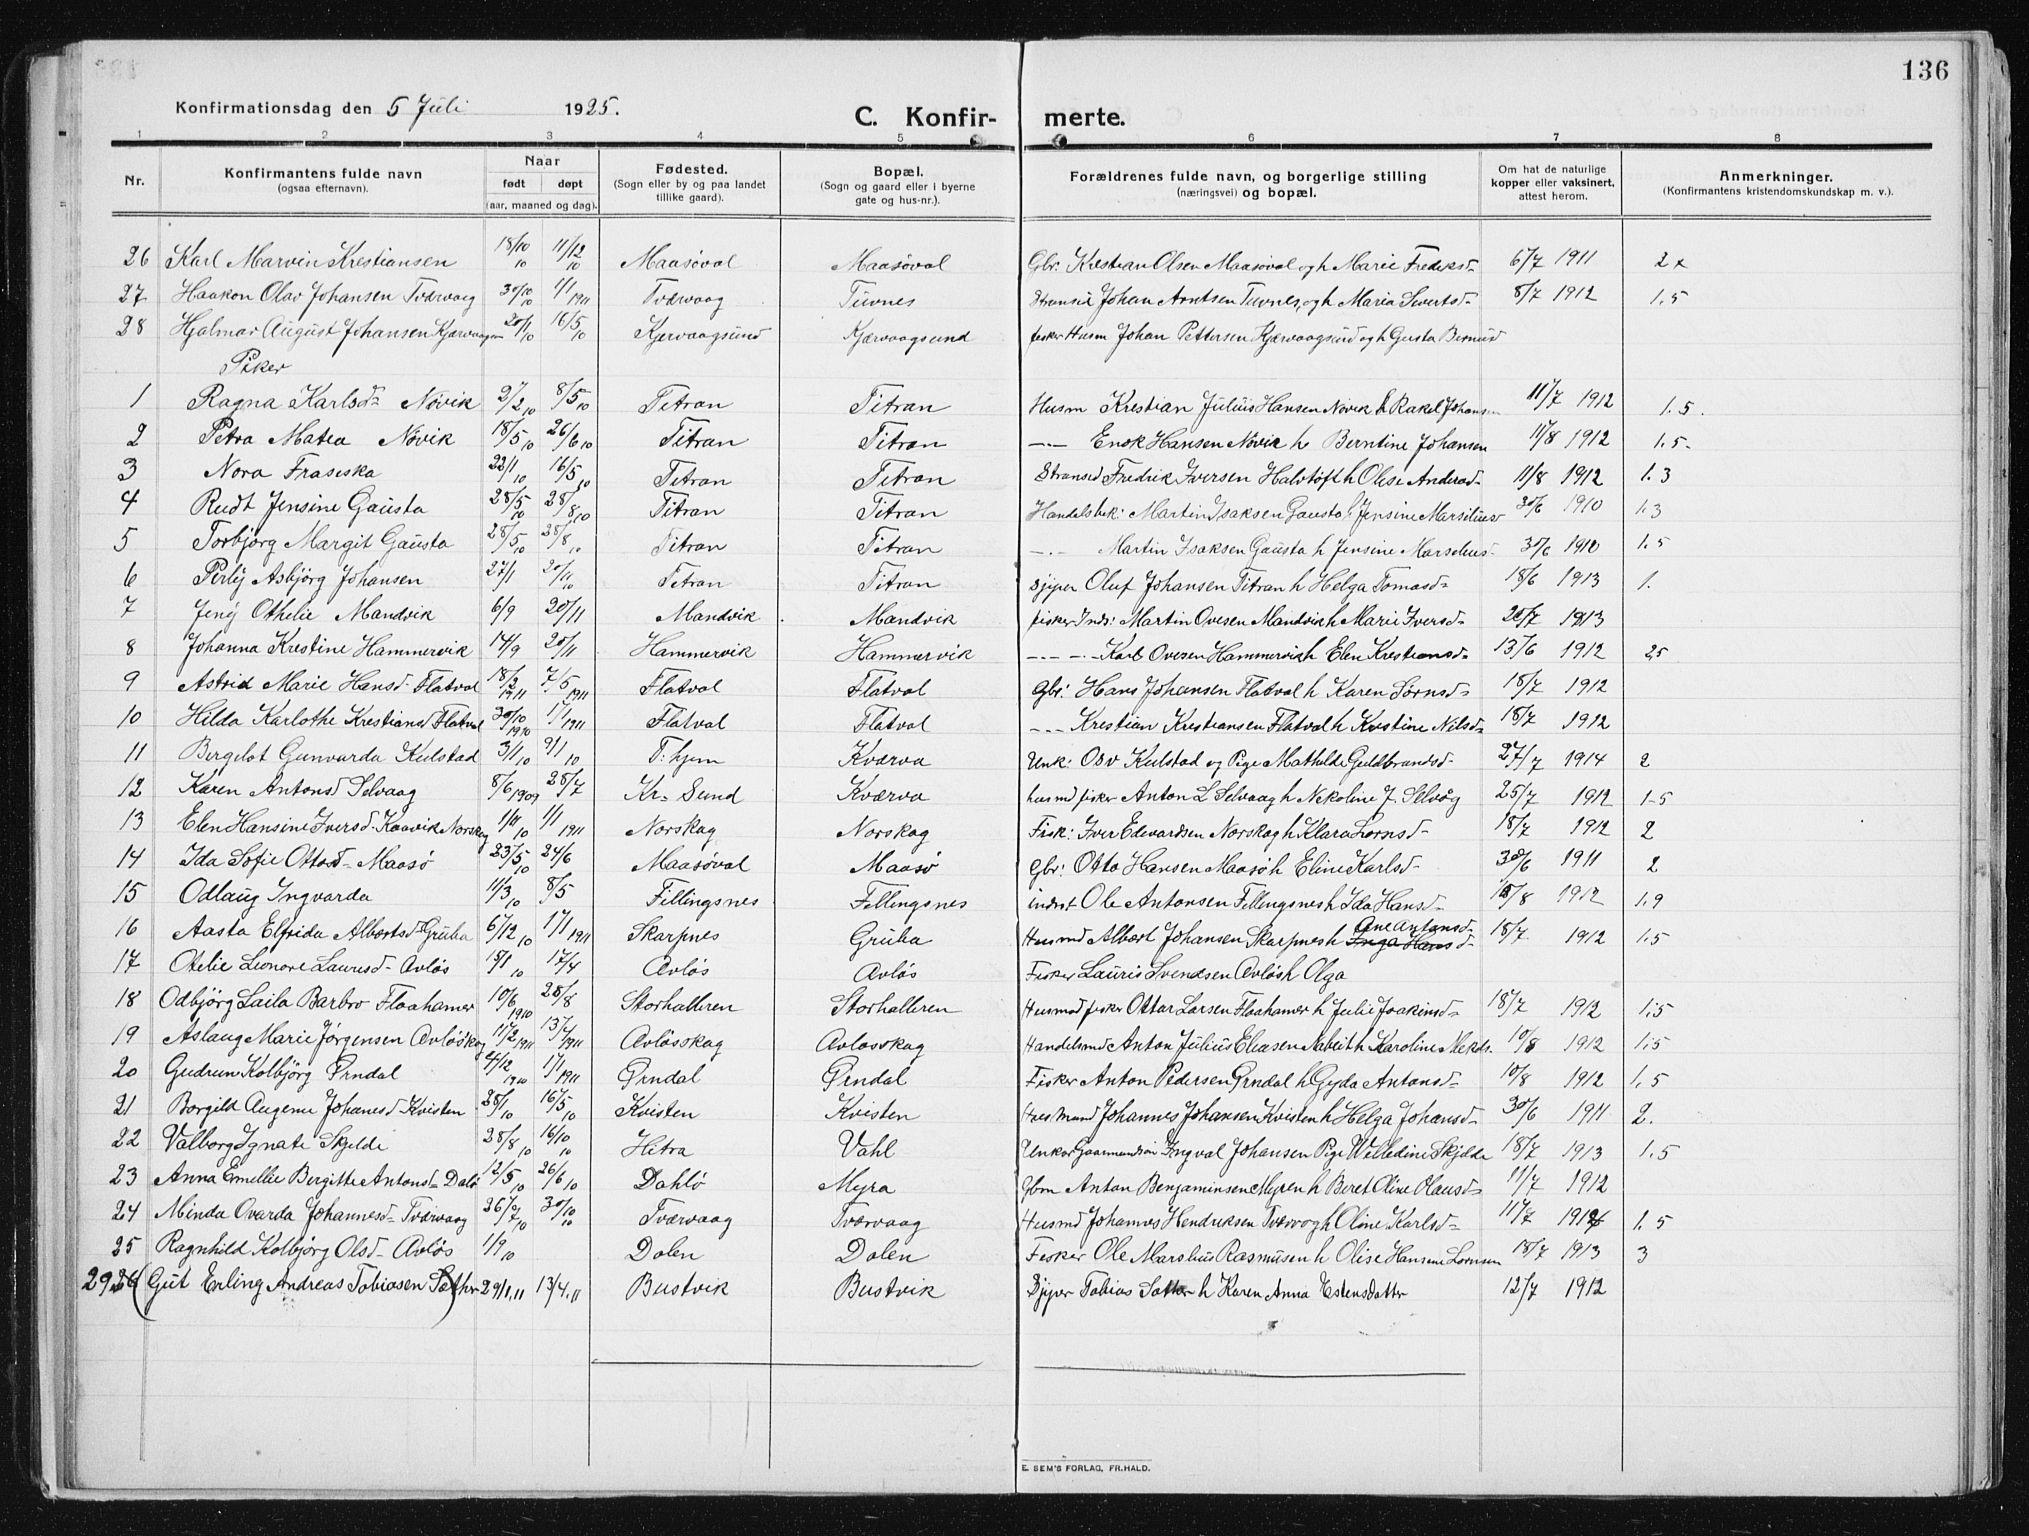 136
Konfirmationsdag den 5 Juli 1925.
C. Konfir- merte.
1 2 3 4 5 6 7 8
Nr. Konfirmantens fulde navn (ogsaa efternavn). Naar født døpt (aar, maaned og dag). Fødested. (Sogn eller by og paa landet tillike gaard). Bopæl. (Sogn og gaard eller i byerne gate og hus-nr.). Forældrenes fulde navn, og borgerlige stilling (næringsvei) og bopæl. Om hat de naturlige kopper eller vaksinert, attest herom. Anmerkninger. (Konfirmantens kristendomskundskap m. v.).
26 Karl Marvin Krestiansen 18/10 10 11/12 10 Maasøval Maasøval Gbr: Krestian Olsen Maasøval og h Marie Fredriksd- 6/7 1911 2x
27 Haakon Olav Johansen Tværvaag 30/10 10 1/1 1911 Tværvaag Tuvnes Johan Arntsen Tuvnes, og h Maria Sivertsd- 8/7 1912 1.5
28 Hjalmar August Johansen Kjærvaagsun 20/1 10 16/5 10 Kjervaagsund Kjærvaagsund fisker Husm Johan Pettersen Kjærvaagsund og h Gusta
Piker
1 Ragna Karlsd- Novik 2/2 10 8/5 10 Titran Titran Husm Krestian Julius Hansen Novik h Rakel Johansen 11/7 1912 1.5.
2 Petra Matea Novik 18/5 10 26/6 10 Titran Titran -- Enok Hansen Novik h Berntine Johansen 11/8 1912 1.5-
3 Nora Frasiska 22/1 10 16/5 10 Titran Titran Fredrik Iversen Halvtøft h Olise Andersd- 11/8 1912 1.3
4 Rudt Jensine Gausta 28/5 10 28/8 10 Titran Titran Handelsbek: Martin Isaksen Gausta h Jensine Marselius 30/6 1910 1.3
5 Torbjørg Margit Gausta 28/5 10 28/8 10 Titran Titran -.- Martin Isaksen Gausta h Jensine Marselius- 30/6 1910 1.5
6 Perly Asbjörg Johansen 27/1 20/11 10 Titran Titran Oluf Johansen Titran h Helga Tomasd- 18/6 1913 1.
7 Jeny Othelie Mandvik 6/9 20/11 Mandvik Mandvik fisker Inds: Martin Ovesen Mandvik h Marie Iversd- 25/7 1913
8 Johanna Krestine Hammervik 14/9 20/11 Hammervik Hammervik -.-.- Karl Ovesen Hammervik h Elen Krestiansd- 13/6 1912 2,5
9 Astrid Marie Hansd- Flatval 18/2 1911 7/5 1911 Flatval Flatval Gbr: Hans Johansen Flatval h Karen Sørnsd- 18/7 1912
10 Hilda Karlothe Krestiansd Flatval 30/10 1910 1/1 1911 Flatval Flatval -.- Krestian Krestiansen Flatval h Kristine Nilsd- 18/7 1912
11 Bergliot Gunvarda Kulstad 3/1 10 9/1 10 T: hjem Kværva Unk: Osv Kulstad og Pige Mathilde Guldbrandsd- 27/7 1914 2
12 Karen Antonsd Selvaag 8/6 1909 28/7 Kr- Sund Kværva husmd fisker Anton L Selvaag h Nekoline J. Selvåg 25/7 1912 1-5
13 Elen Hansine Iversd- Kaavik Norskag 1/11 10 1/1 1911 Norskag Norskag Fisk: Iver Edvardsen Norskag h Klara Lornsd- 18/7 1912 2
14 Ida Sofie Ottosd- Maasø 23/5 10 24/6 Maasøval Maasø Gbr: Otto Hansen Maasø h Eline Karlsd- 30/6 1911 2
15 Odlaug Ingvarda 11/3 10 8/5 Fillingsnes Fillingsnes inderst Ole Antonsen Fillingsnes h Ida Hansd- 18/8 1912 1.9
16 Aasta Elfrida Albertsd- Gruba 6/12 10 1/1 1911 Skarpnes Gruba Husmd Albert Johansen Skarpnes h Inga Hansd- Ane Antonsd- 18/7 1912 1.5
17 Otelie Leonore Laurisd- Avløs 15/1 10 17/4 Avløs Avløs Fisker Lauris Svendsen Avløs h Olga
18 Odbjörg Laila Barbro Flaahamer 10/6 1910 28/8 Storhalleren Storhalleren Husmd fisker Ottar Larsen Flaahamer h Julie Joakimsd- 18/7 1912 1.5
19 Aslaug Marie Jørgensen Avløskag 11/2 1911 13/4 1911 Avløsskag Avløsskag Handelsmd Anton Julius Eliasen Nabeit h Karoline 10/8 1912 1.5
20 Gudrun Kolbjörg Ørndal 4/12 1910 1/1 1911 Ørndal Ørndal Fisker Anton Pedersen Ørndal h Gyda Antonsd- 10/8 1912 1.5
21 Borgild Augenie Johanesd Kvisten 28/1 10 16/5 10 Kvisten Kvisten Husmand Johannes Johansen Kvisten h Helga Johansd- 30/6 1911 2.
22 Valborg Ignate Skjelde 28/8 10 16/10 10 Hitra Vahl Unkar Gaarmandsøn Ingval Johansen Pige Willedine Skjelde 18/7 1913 1.5
23 Anna Emellie Bergitte Antonsd- Dalø 12/5 10 26/6 10 Dahlø Myra Gbm Anton Benjaminsen Myren h Beret Oline Olausd- 11/7 1912
24 Minda Ovarda Johannesd- Tværvaag 26/7 10 30/10 10 Tværvaag Tværvaag Husmd Johannes Hendriksen Tværvog h Oline Karlsd- 11/8 1912 1.5
25 Ragnhild Kolbjörg Olsd- Avløs 1/9 10 Dalen Dalen Fisker Ole Marshius Rasmusen h Olise Hansine Lornsen 18/7 1913 3
29 26 (Gut Erling Andreas Tobiasen Sæther) 29/1,11 13/4,11 Bustvik Bustvik Tobias Sæther h Karen Anna Estensdatter 12/7 1912
E. SEM'S FORLAG, FR.HALD.